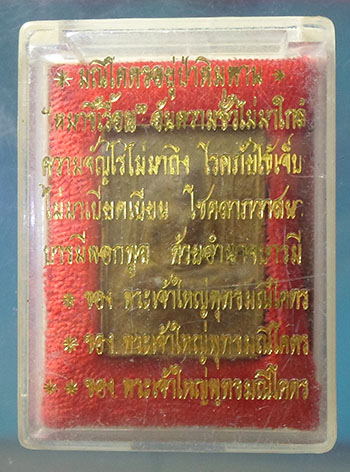 * มณีโคตรอยู่ป่าหิมพาน *
"หมาขี้เรื้อน" อันความชั่วไม่มาใกล้
ความจัญไรไม่มาถึง โรคภัยไข้เจ็บ
ไม่มาเบียดเบียน โชคลาภวาสนา
บารมีงอกพูน ด้วยอำนาจบารมี
* ของ. พระเจ้าใหญ่พุทธมณีโคตร
* ของ. พระเจ้าใหญ่พุทธมณีโคตร
* * ของ. พระเจ้าใหญ่พุทธมณีโคตร